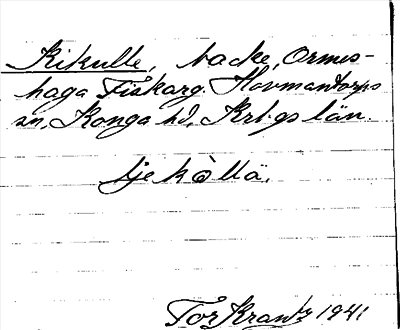 Kikulle, backe, Ormes-
haga Fiskarg. Hovmantorps
sn, Konga hd, Krbgs län.
Tor Krantz 1941